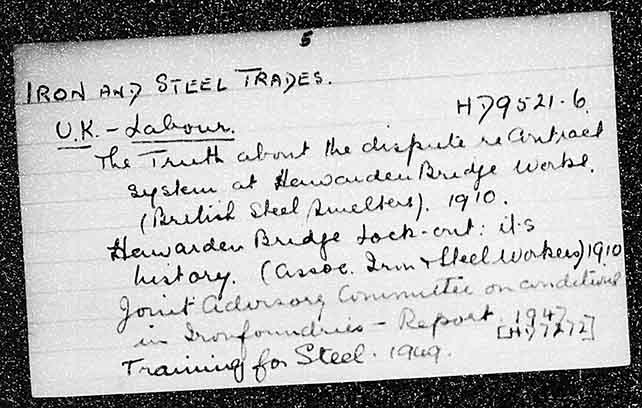 5
IRON AND STEEL TRADES.
HD9521.6
U.K. - Labour.
The Truth about the dispute re Contract
System at Hawarden Bridge Works.
(British Steel Smelters). 1910.
Hawarden Bridge Lock-out: its
history. (Assoc. Iron & Steel Workers) 1910
Joint Advisory Committee on conditions
in Ironfoundries - Report. 1947
[HD7272]
Training for Steel. 1949.